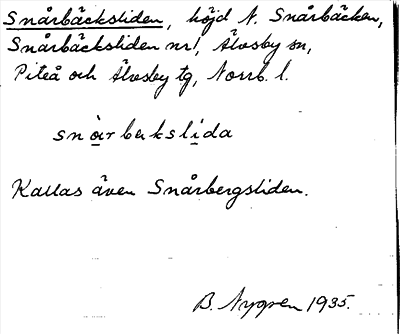 Snårbäcksliden, höjd N. Snårbäcken,
Snårbäcksliden nr 1, Älvsby sn,
Piteå och Älvsby tg, Norrb. l.
snȧrbakslida
Kallas även Snårbergsliden.
B. Nygren 1935.